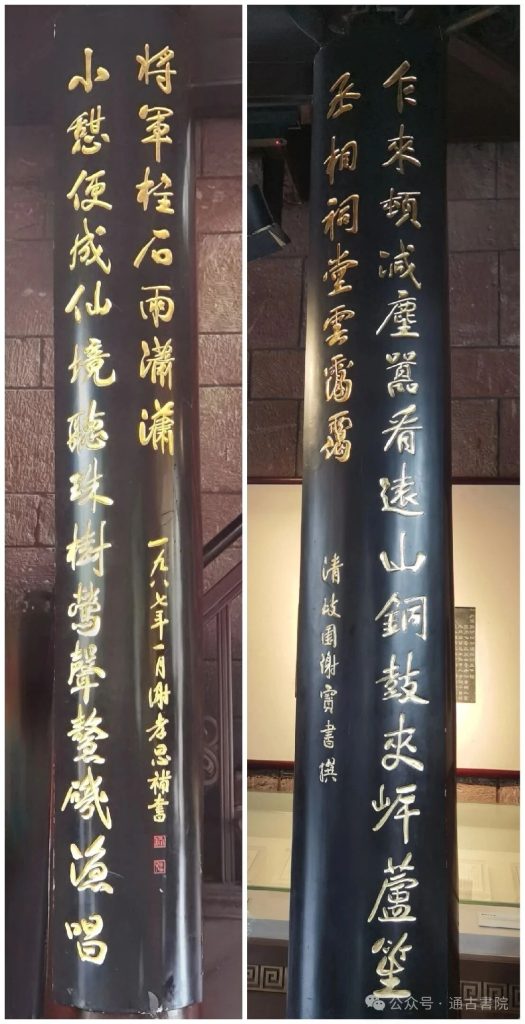 乍來頓減塵囂看遠山銅鼓夾岸蘆笙
丞相祠堂雲靄靄
清園謝寶書撰
小憩便成仙境聽珠樹鶯聲鰲磯漁唱
將軍柱石雨瀟瀟
一九八七年一月謝孝思補書
公众号·通古書院